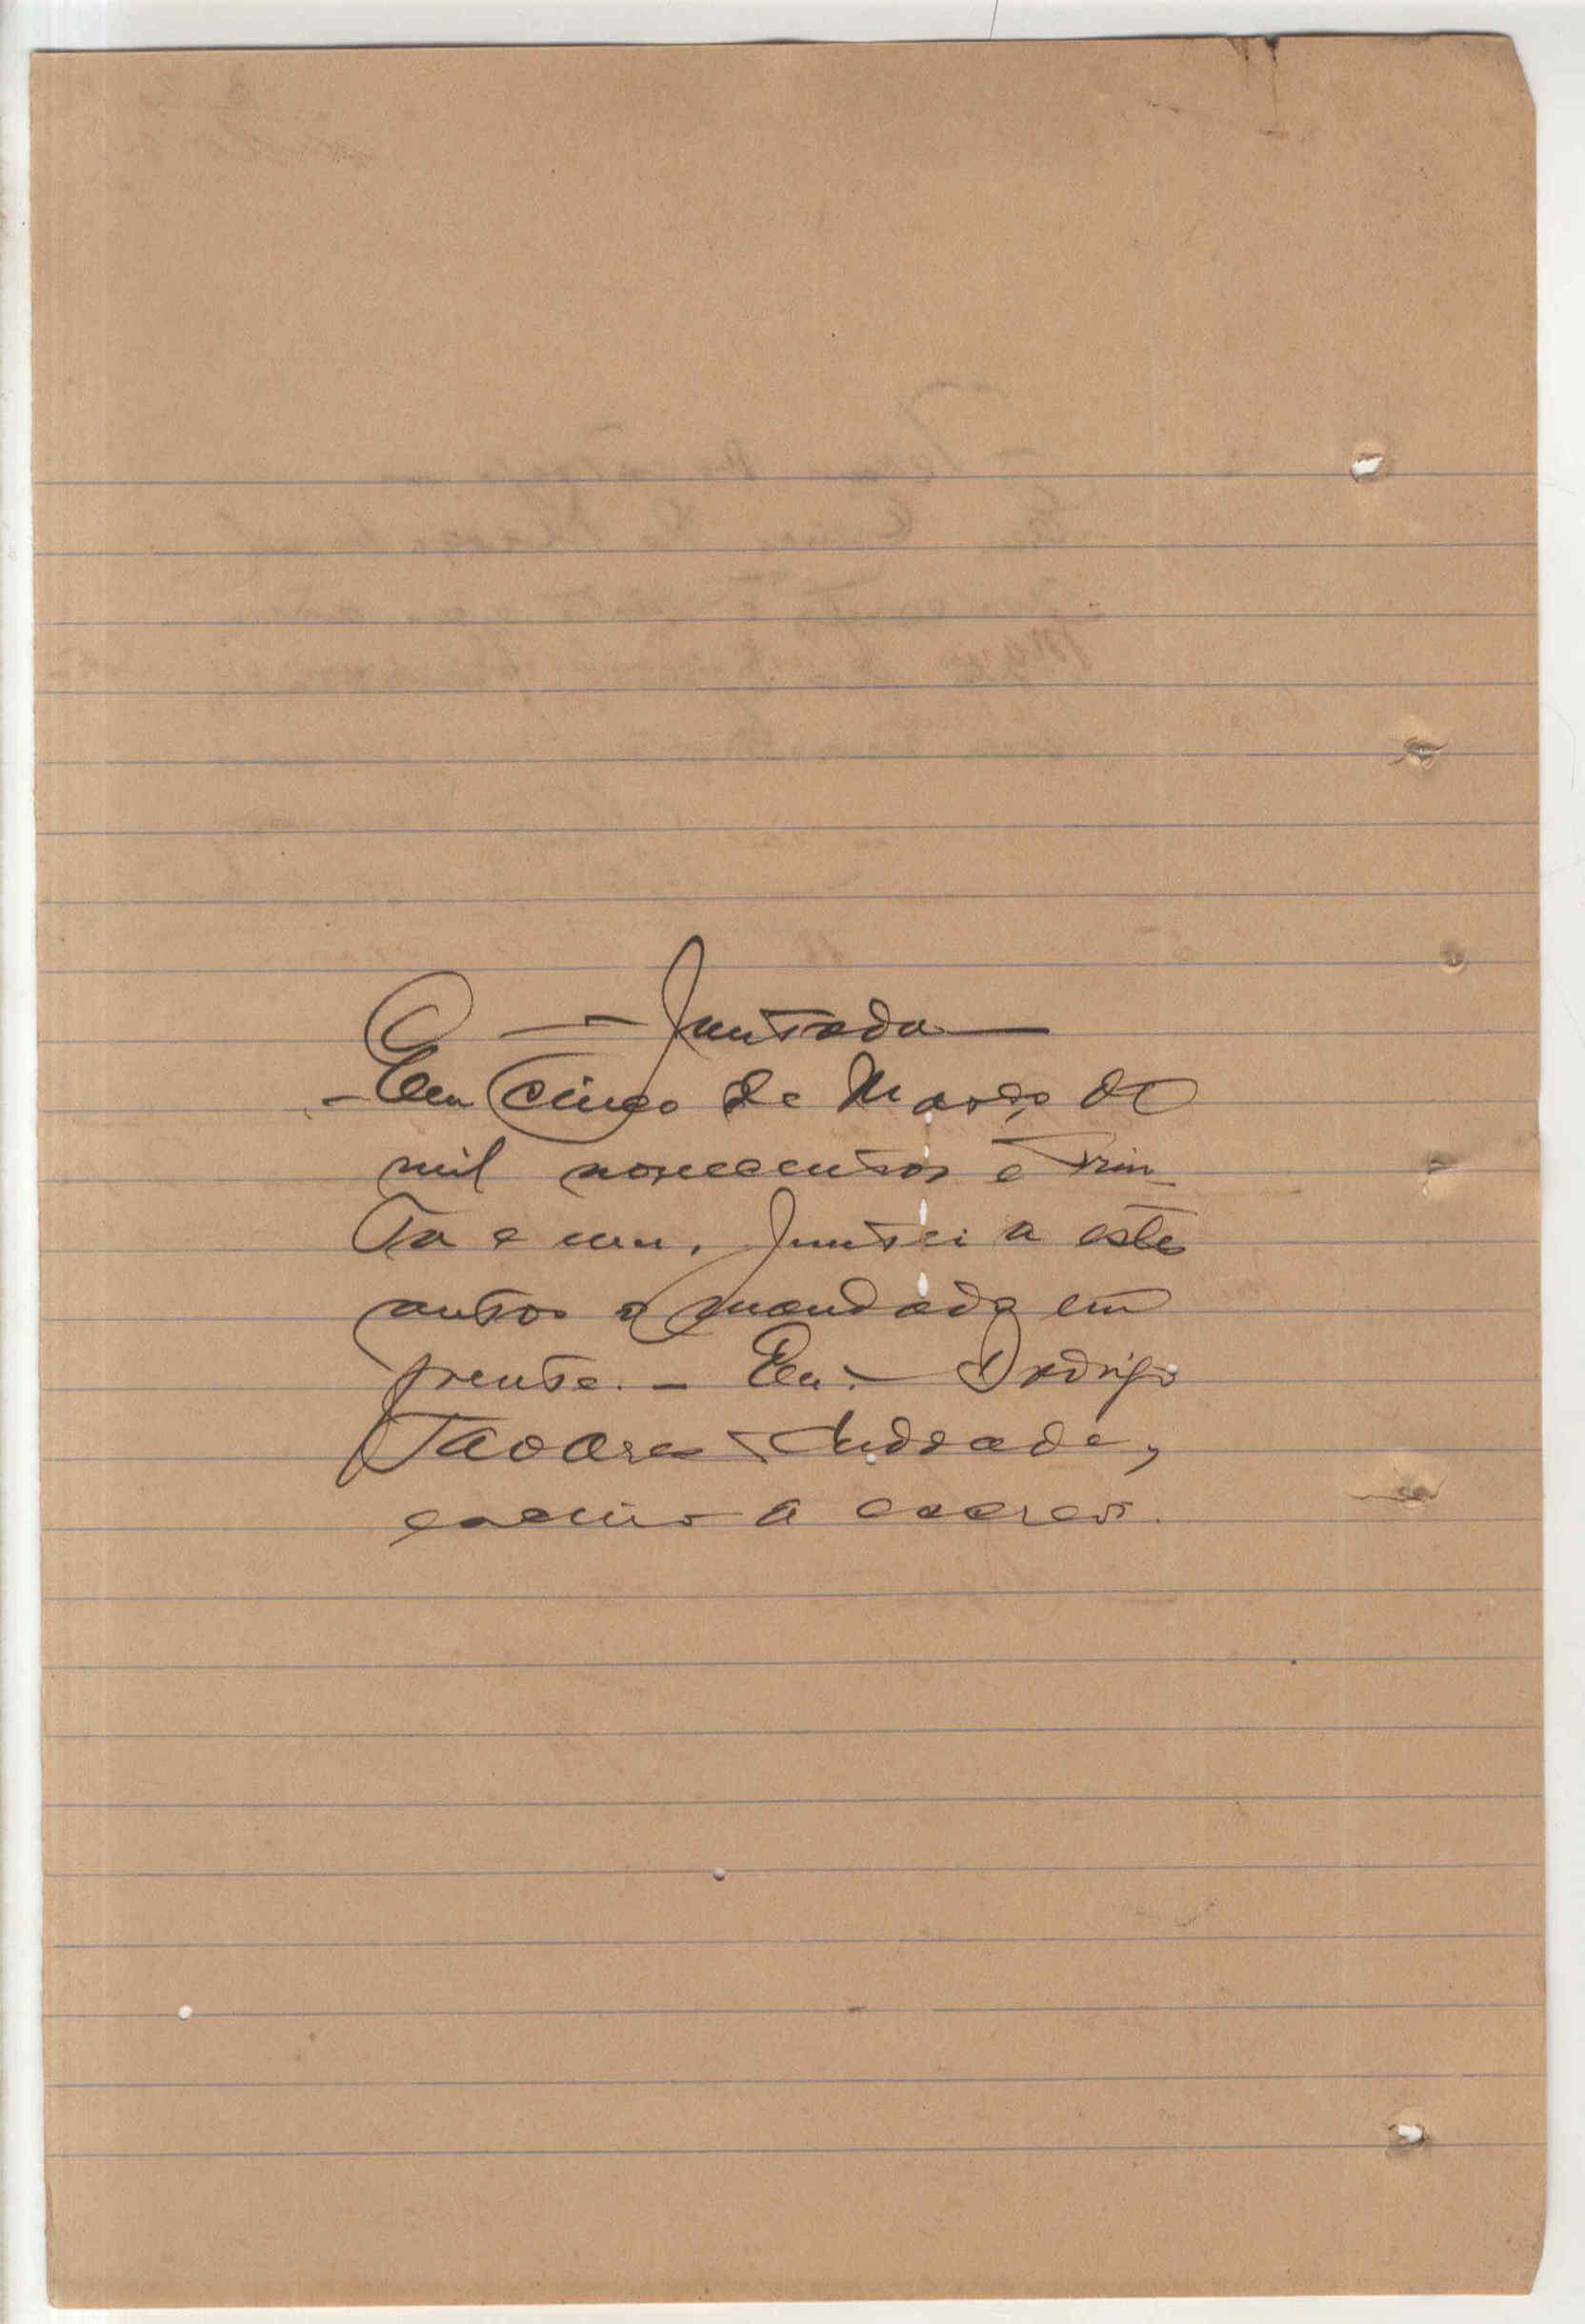 — Juntada —
- Em cinco de Março de
mil novecentos e trin-
ta e um, juntei a estes
autos o mandado em
frente. - Eu, Rodrigo
Tavares Andrade,
a escrevi.